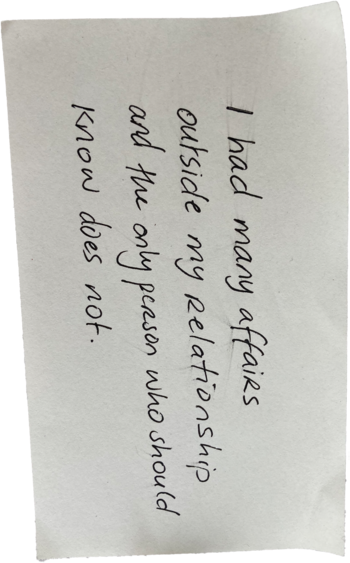 I had many affairs
outside my relationship
and the only person who should
know does not.